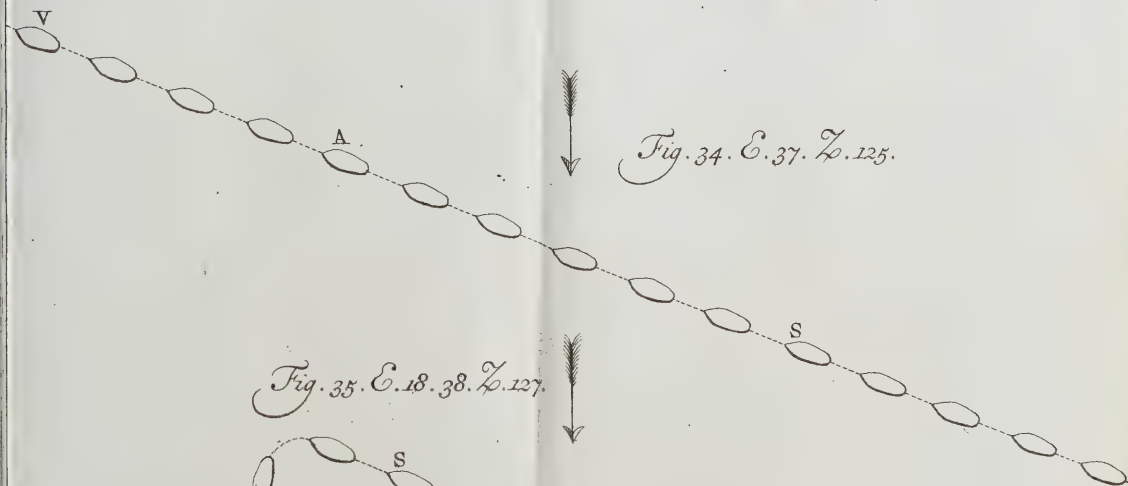 V
A
Fig. 34. E. 37. Z. 125.
S
Fig. 35. E. 18. 38. Z. 127.
S